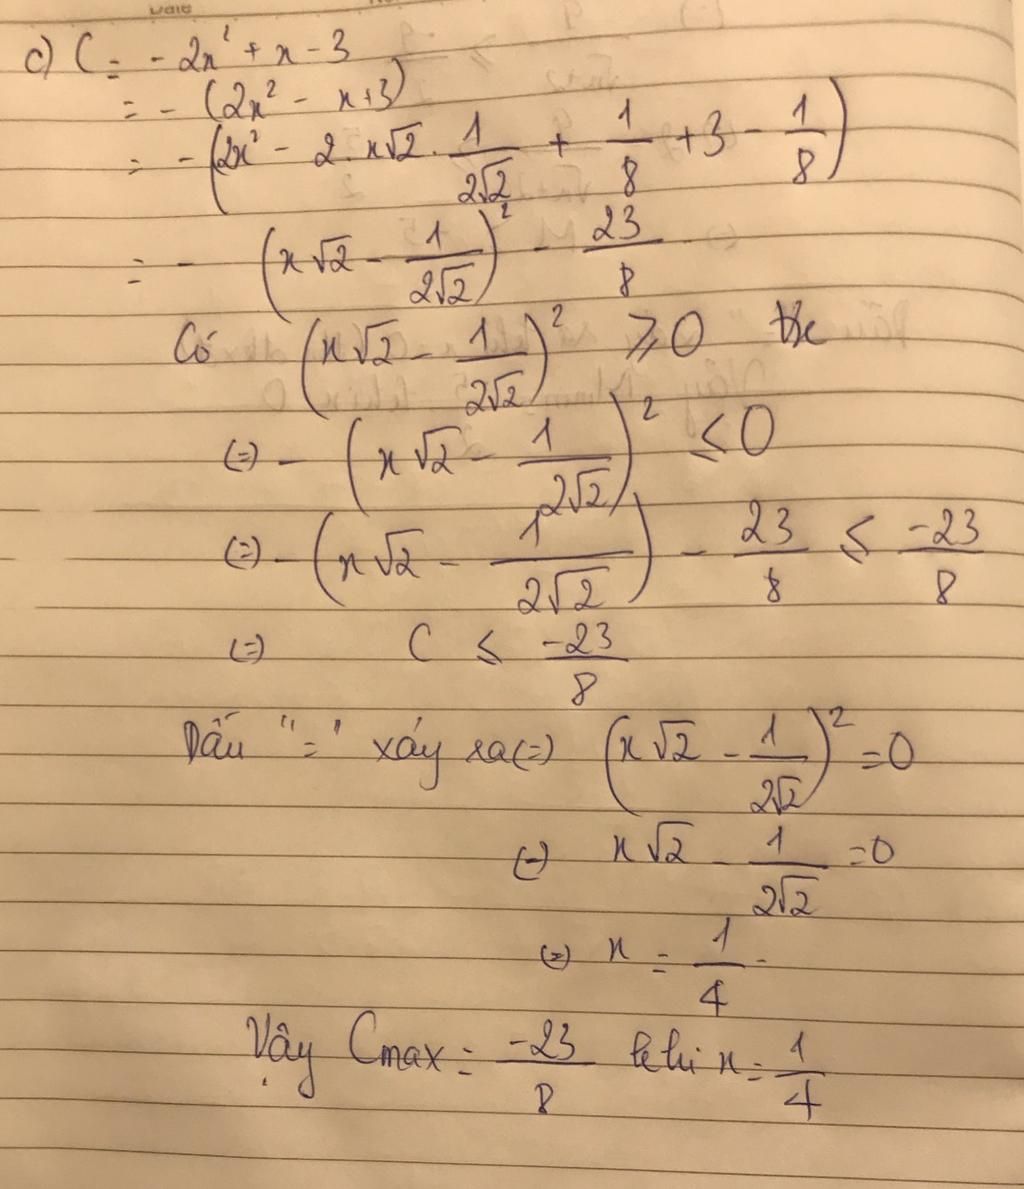 Date
c) C = - 2x² + x - 3
= - (2x² - x + 3)
= - (2x² - 2. x√2 . 1/(2√2) + 1/8 + 3 - 1/8)
= - (x√2 - 1/(2√2))² - 23/8
Có (x√2 - 1/(2√2))² ≥ 0 ∀x
(=) - (x√2 - 1/(2√2))² ≤ 0
(=) - (x√2 - 1/(2√2)) - 23/8 ≤ -23/8
(=) C ≤ -23/8
Dấu "=" xảy ra (=) (x√2 - 1/(2√2))² = 0
(=) x√2 - 1/(2√2) = 0
(=) x = 1/4 .
Vậy Cmax = -23/8 khi x = 1/4